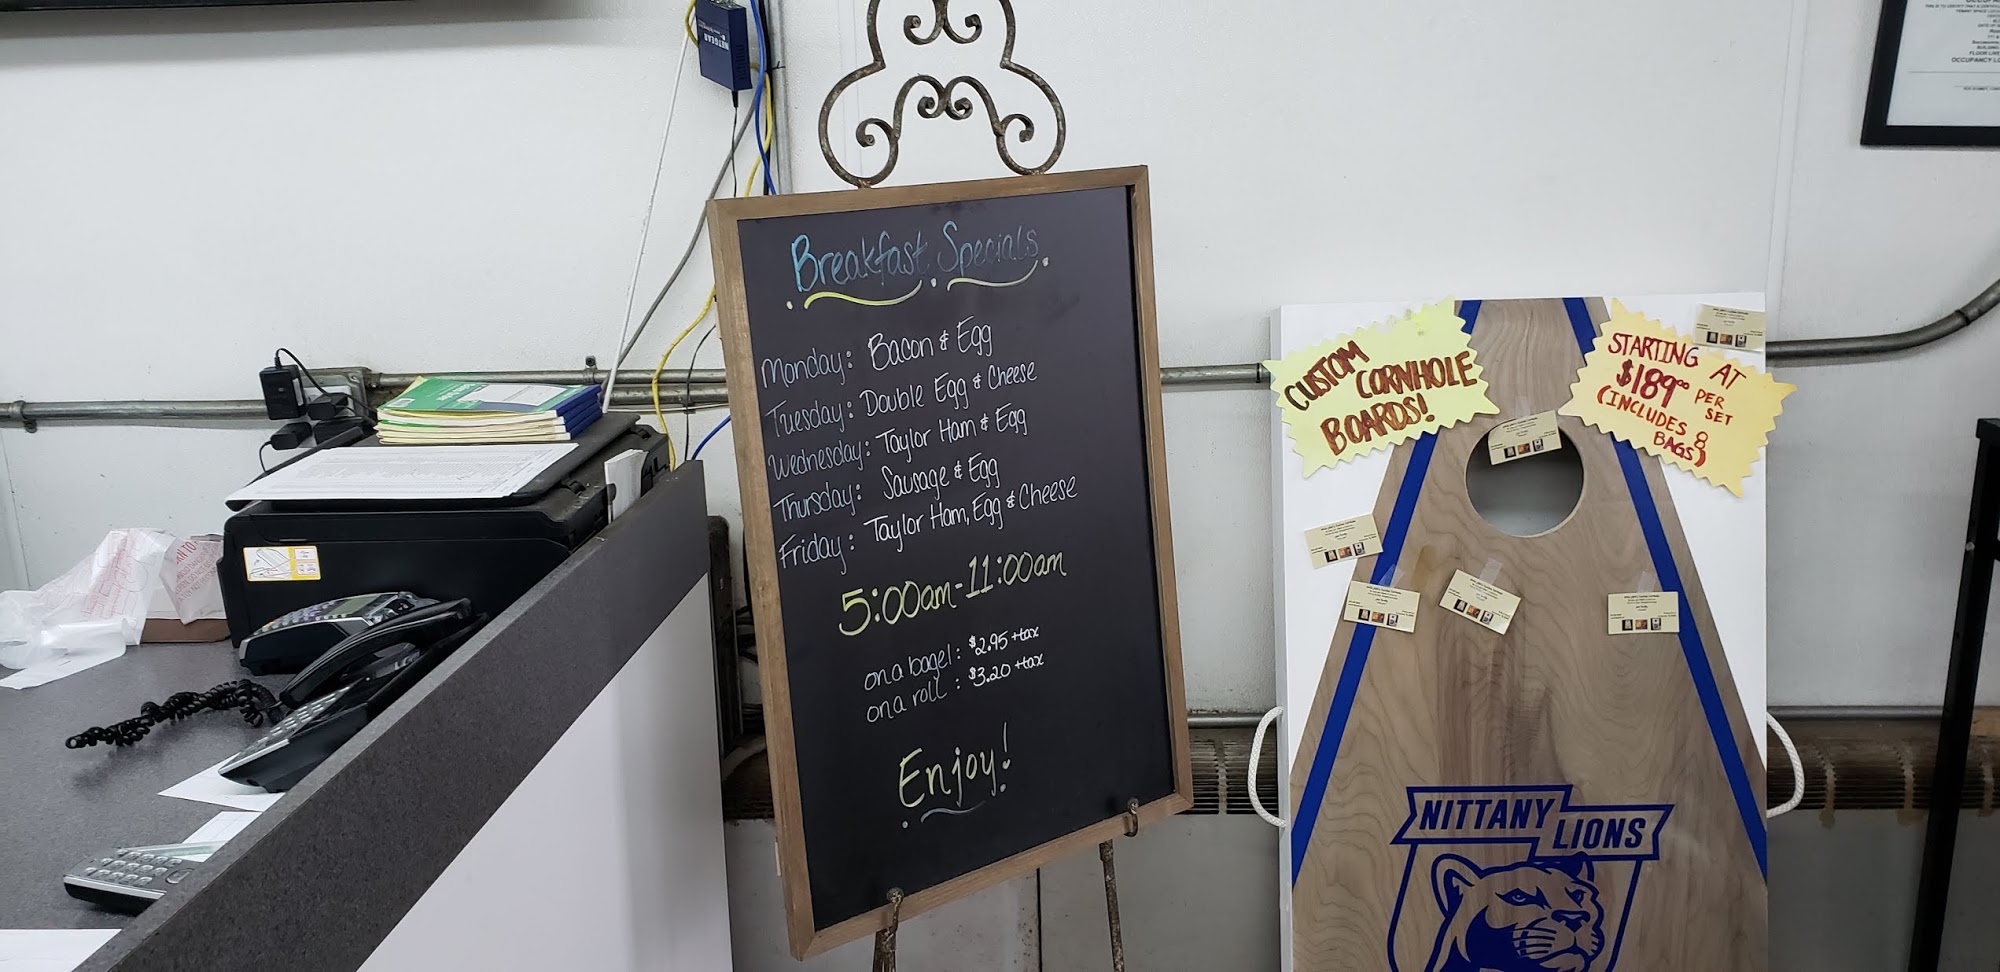 NETGEAR
Breakfast Specials
Monday: Bacon & Egg
Tuesday: Double Egg & Cheese
Wednesday: Taylor Ham & Egg
Thursday: Sausage & Egg
Friday: Taylor Ham, Egg & Cheese
5:00am-11:00am
on a bagel: $2.95 +tax
on a roll: $3.20 +tax
Enjoy!
CUSTOM
CORNHOLE
BOARDS!
STARTING AT
$189.00 PER
SET
(INCLUDES 8
BAGS)
NITTANY
LIONS